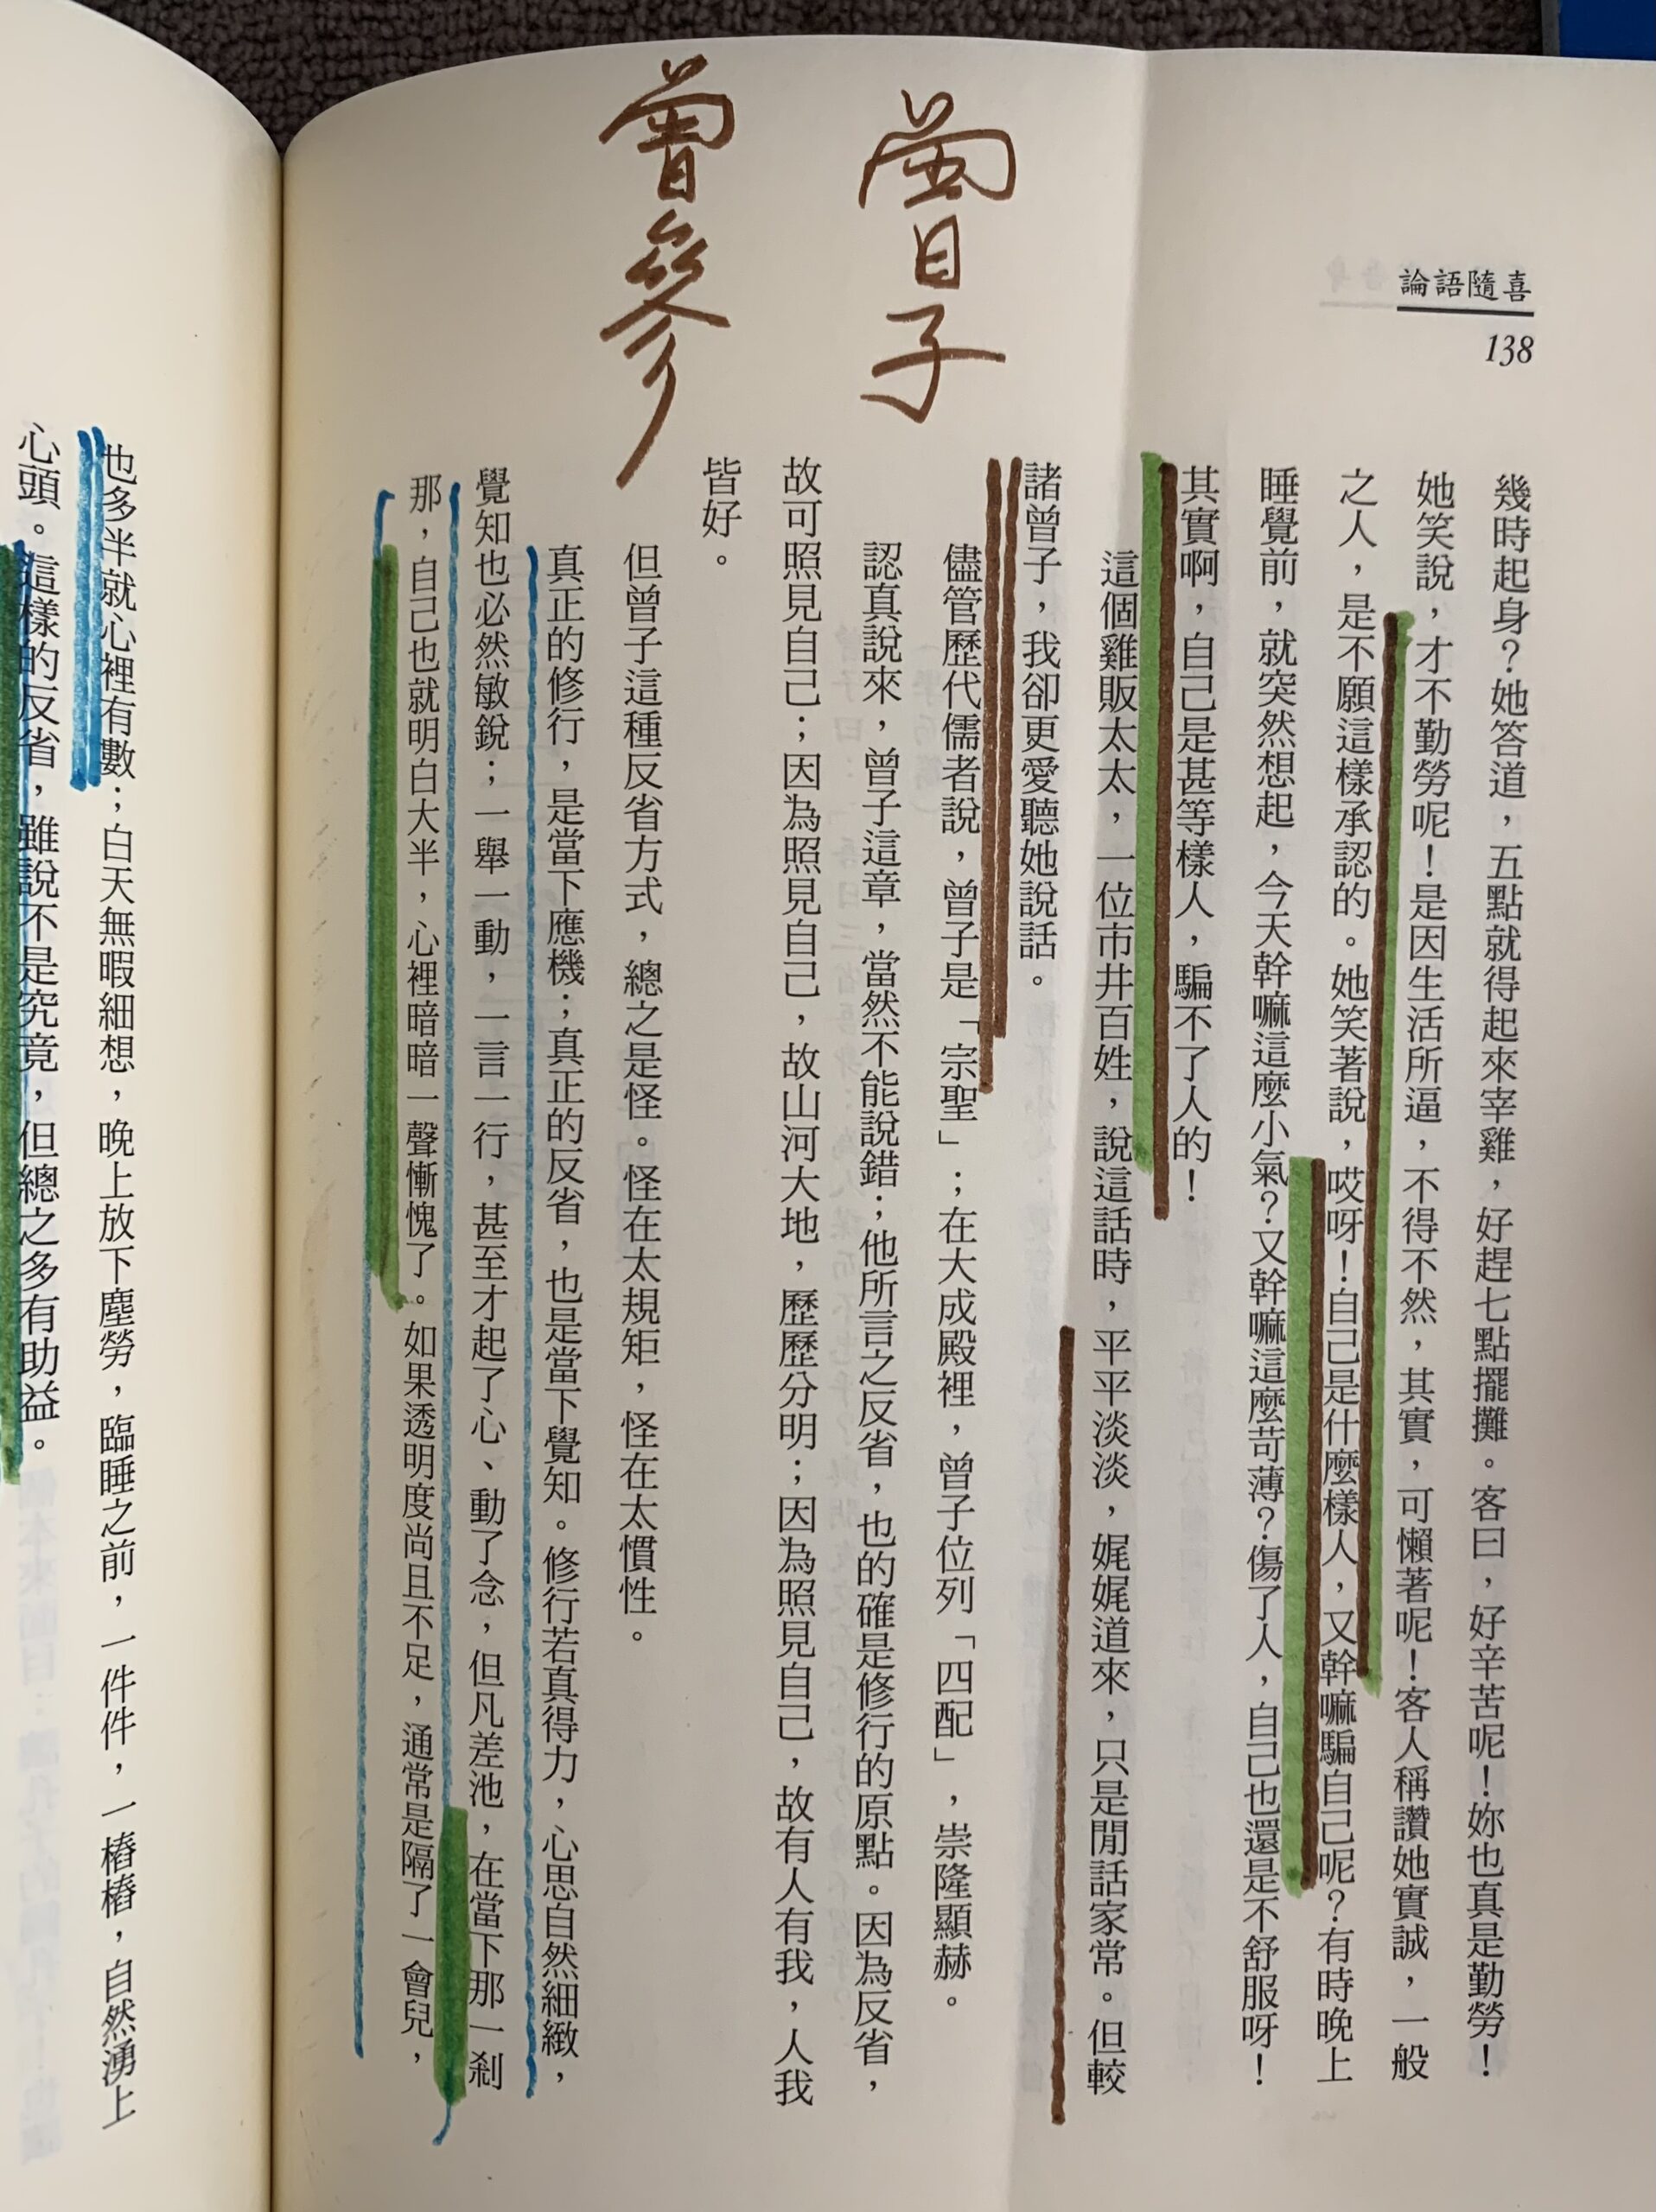 論語隨喜
138
曾子
曾參
幾時起身？她答道，五點就得起來宰雞，好趕七點擺攤。客曰，好辛苦呢！妳也真是勤勞！
她笑說，才不勤勞呢！是因生活所逼，不得不然，其實，可懶著呢！客人稱讚她實誠，一般
之人，是不願這樣承認的。她笑著說，哎呀！自己是什麼樣人，又幹嘛騙自己呢？有時晚上
睡覺前，就突然想起，今天幹嘛這麼小氣？又幹嘛這麼苛薄？傷了人，自己也還是不舒服呀！
其實啊，自己是甚等樣人，騙不了人的！
這個雞販太太，一位市井百姓，說這話時，平平淡淡，娓娓道來，只是閒話家常。但較
諸曾子，我卻更愛聽她說話。
儘管歷代儒者說，曾子是「宗聖」；在大成殿裡，曾子位列「四配」，崇隆顯赫。
認真說來，曾子這章，當然不能說錯；他所言之反省，也的確是修行的原點。因為反省，
故可照見自己；因為照見自己，故山河大地，歷歷分明；因為照見自己，故有人有我，人我
皆好。
但曾子這種反省方式，總之是怪。怪在太規矩，怪在太慣性。
真正的修行，是當下應機；真正的反省，也是當下覺知。修行若真得力，心思自然細緻，
覺知也必然敏銳；一舉一動，一言一行，甚至才起了心、動了念，但凡差池，在當下那一剎
那，自己也就明白大半，心裡暗暗一聲慚愧了。如果透明度尚且不足，通常是隔了一會兒，
也多半就心裡有數；白天無暇細想，晚上放下塵勞，臨睡之前，一件件，一樁樁，自然湧上
心頭。這樣的反省，雖說不是究竟，但總之多有助益。